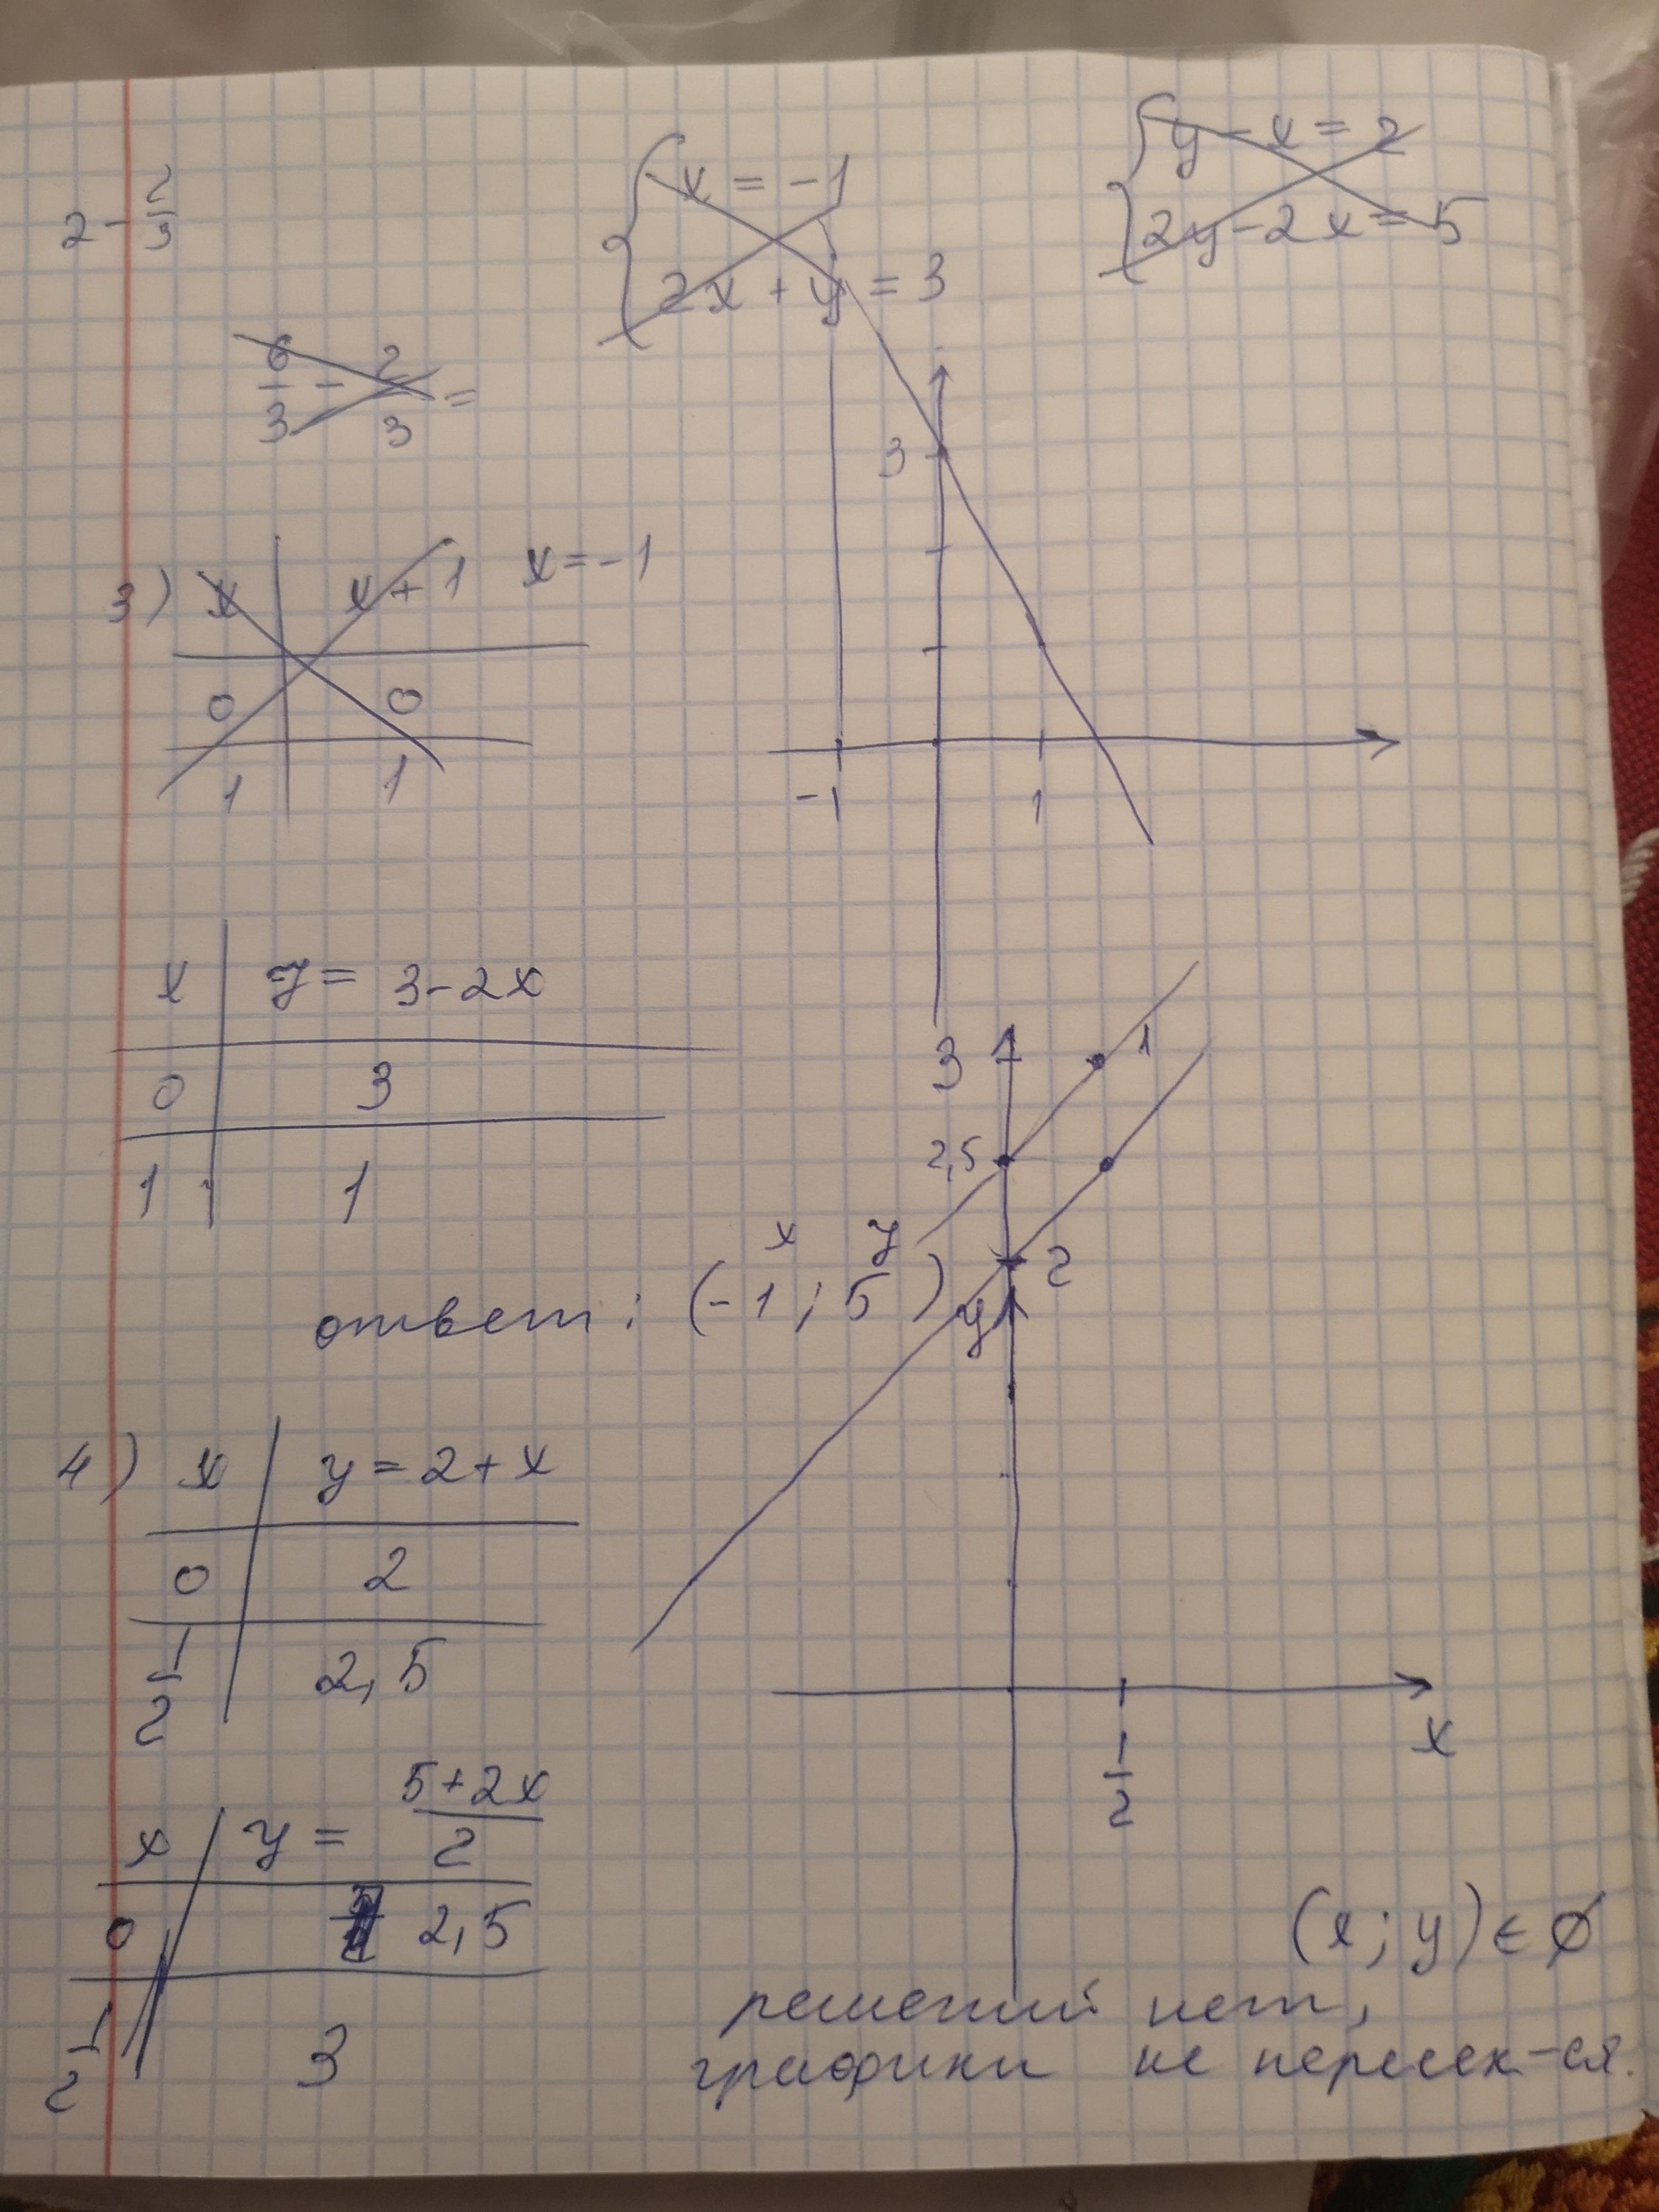 2 - 2/3
{ x = -1
2x + y = 3
{ y - x = 2
2y - 2x = 5
6/3 - 2/3 =
3) x | x + 1 x = -1
0 | 0
1 | 1
3
-1 1
x | y = 3 - 2x
0 | 3
1 | 1
x y
ответ: (-1; 5)
3 1
2,5
2
y
4) x | y = 2 + x
0 | 2
1/2 | 2,5
x
1/2
x | y = (5 + 2x)/2
0 | 2,5
1/2 | 3
(x; y) ∈ ∅
решений нет,
графики не пересек-ся.